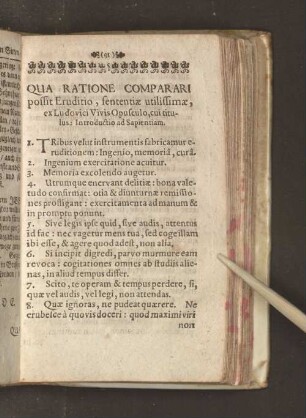 QUA RATIONE COMPARARI
possit Eruditio, sententiæ utilissimæ,
ex Ludovici Vivis Opusculo, cui titu-
lus: Introductio ad Sapientiam.
1. Tribus velut instrumentis fabricamur e-
ruditionem: Ingenio, memoriâ, curâ.
2. Ingenium exercitatione acuitur.
3. Memoria excolendo augetur.
4. Utrumque enervant delitiæ: bona vale-
tudo confirmat: otia & diuturnæ remissio-
nes profligant: exercitamenta ad manum &
in promptu ponunt.
5. Sive legis ipse quid, sive audis, attentus
id fac: nec vagetur mens tua, sed coge illam
ibi esse, & agere quod adest, non alia.
6. Si incipit digredi, parvo murmure eam
revoca: cogitationes omnes ab studiis alie-
nas, in aliud tempus differ.
7. Scito, te operam & tempus perdere, si,
quæ vel audis, vel legi, non attendas.
8. Quæ ignoras, ne pudeat quærere. Ne
erubesce à quovis doceri: quod maximi viri
non